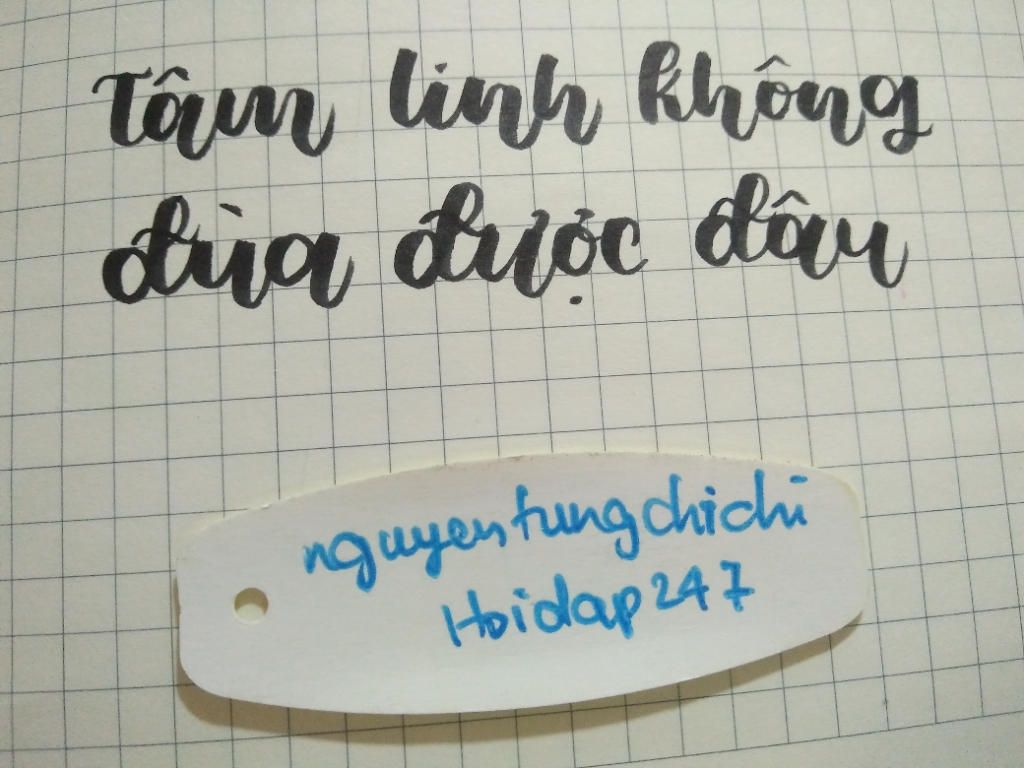 Tâm linh không
đùa được đâu
nguyentungchichi
Hoidap247